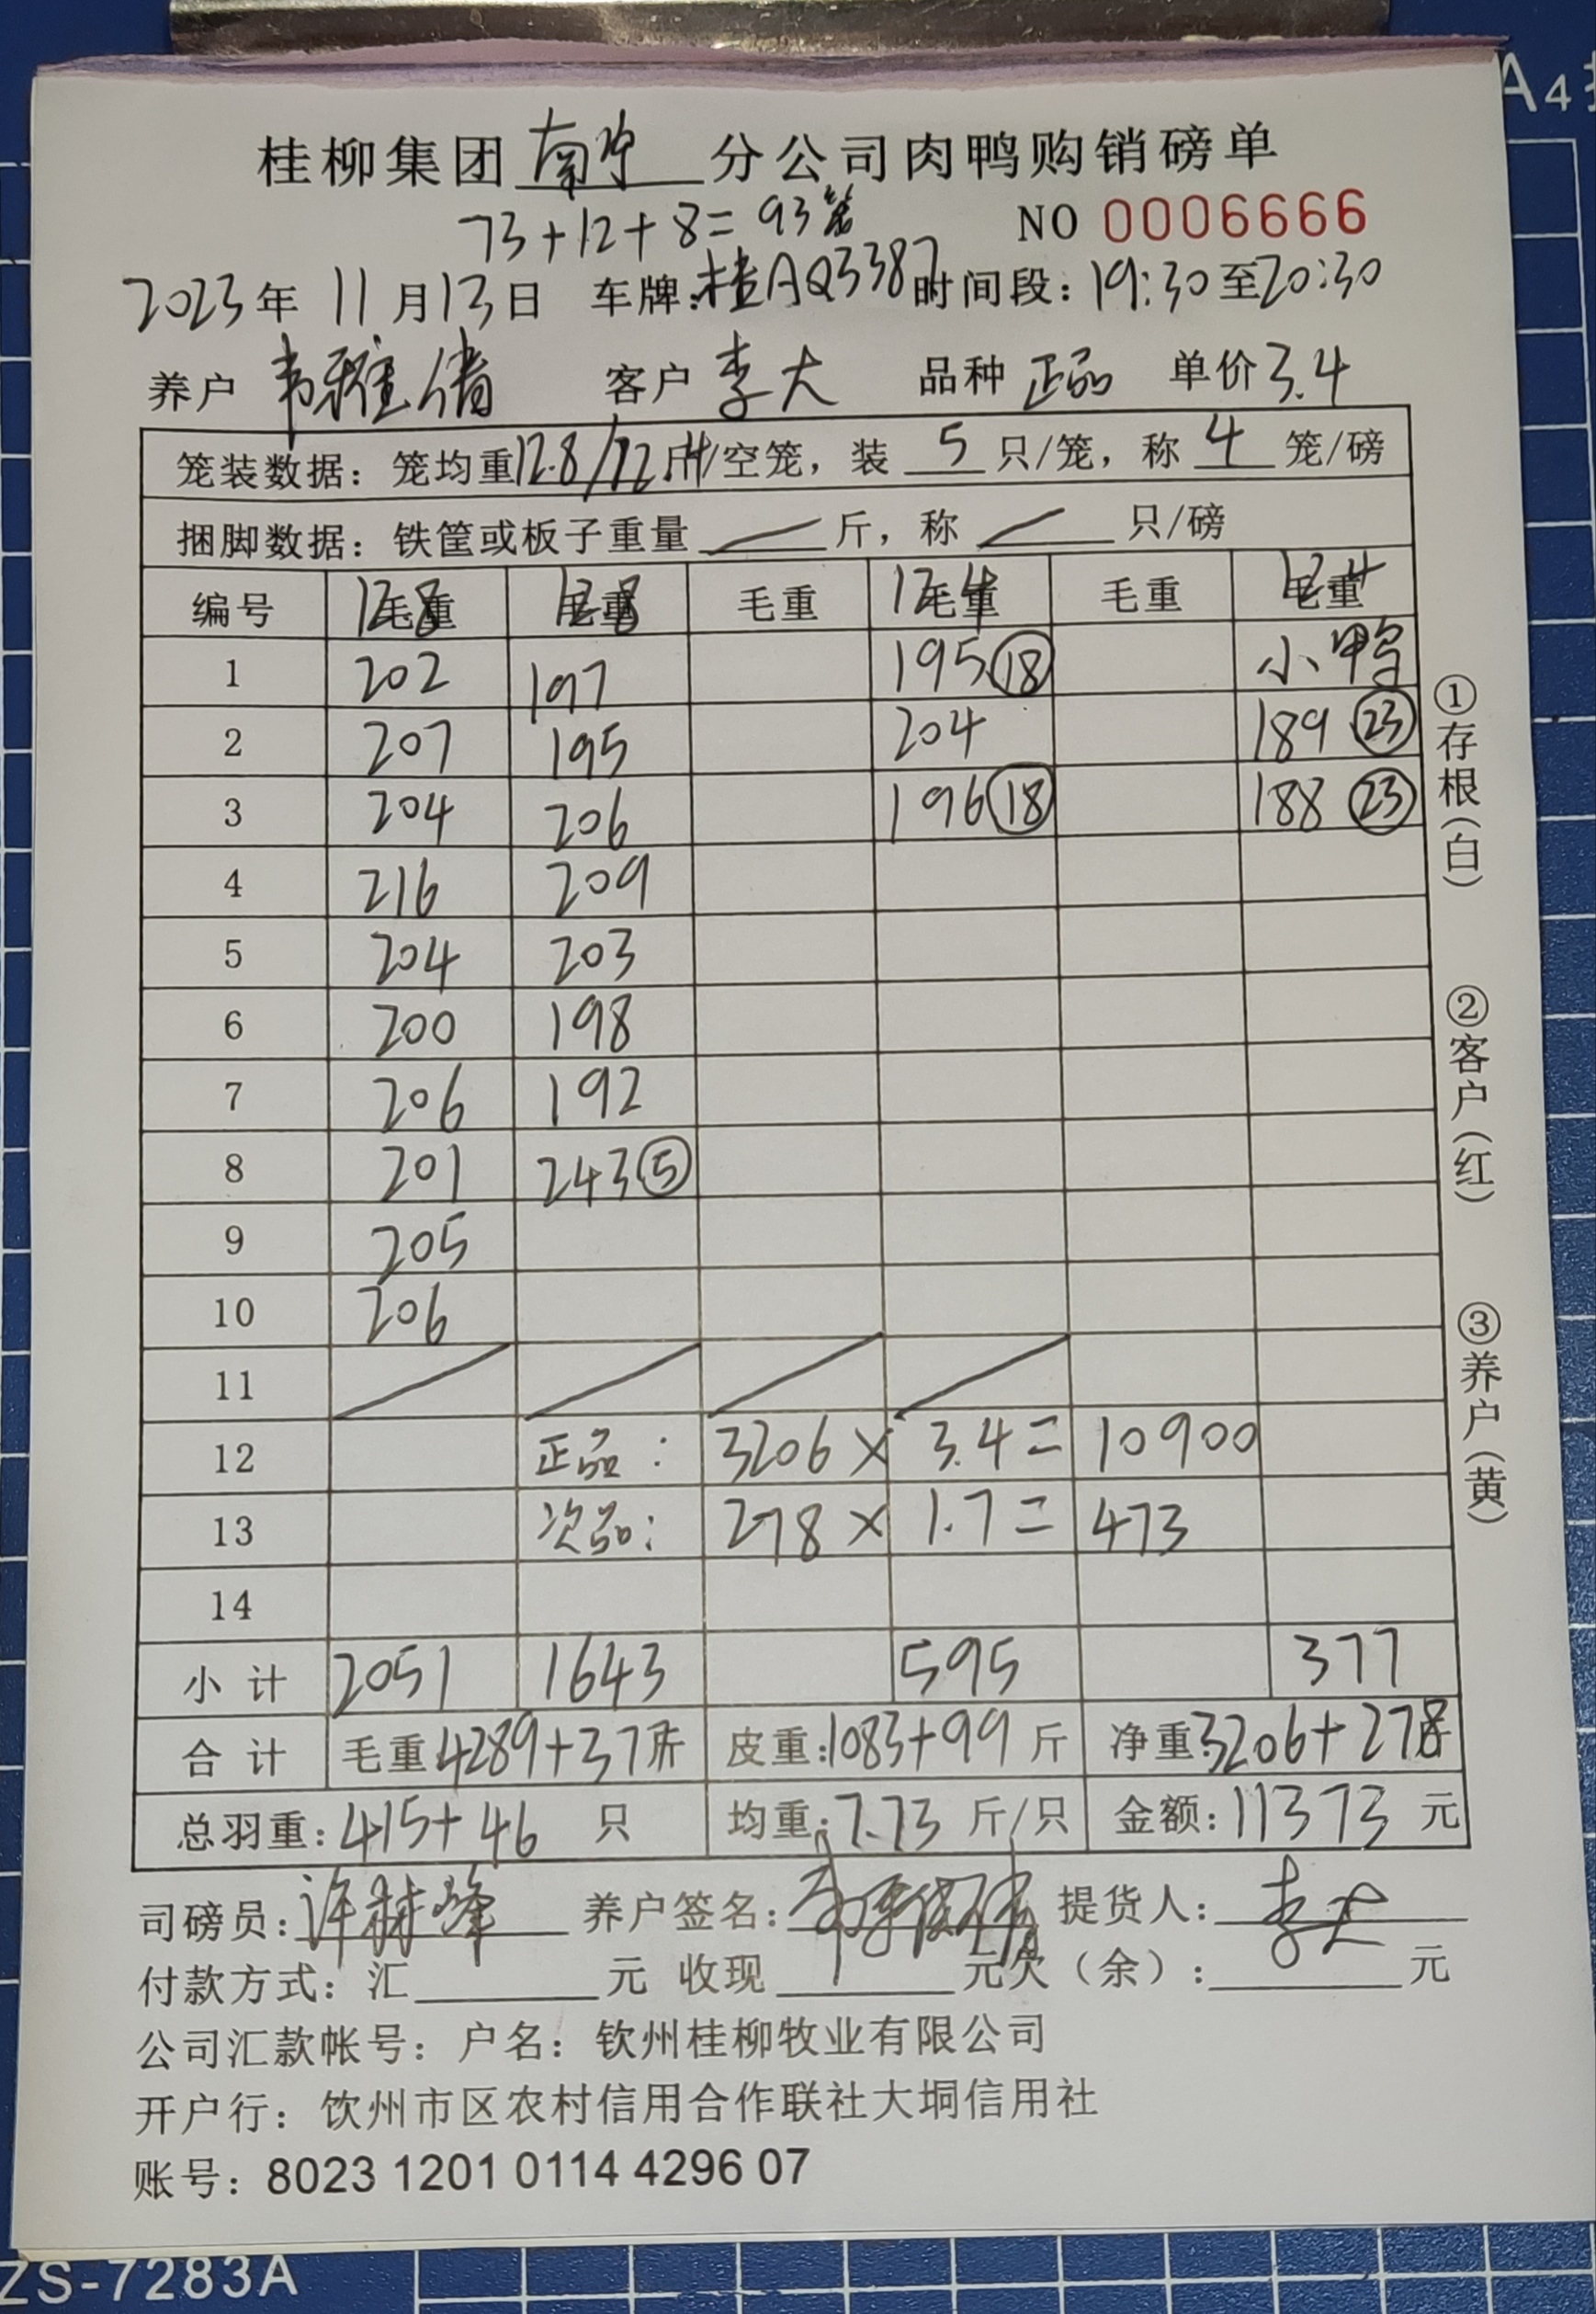 A4
桂柳集团南宁分公司肉鸭购销磅单
73+12+8=93笼 NO 0006666
2023年 11月13日 车牌:桂AQ3387 时间段:19:30至20:30
养户 韦雅倩 客户 李大 品种 正品 单价3.4
笼装数据:笼均重12.8/12.4斤/空笼,装 5 只/笼,称 4 笼/磅
捆脚数据:铁筐或板子重量 / 斤,称 / 只/磅
编号 毛重12.8 毛重12.8 毛重 毛重12.4 毛重 毛重12.4
1 202 197 195⑱ 小鸭
2 207 195 204 189㉓
3 204 206 196⑱ 188㉓
4 216 209
5 204 203
6 200 198
7 206 192
8 201 243⑤
9 205
10 206
11 / / / /
12 正品: 3206 × 3.4= 10900
13 次品: 278 × 1.7= 473
14
小计 2051 1643 595 377
合计 毛重4289+377斤 皮重:1083+99斤 净重:3206+278斤
总羽重:415+46 只 均重:7.73 斤/只 金额:11373 元
司磅员:许林峰 养户签名: 提货人:李大
付款方式:汇 元 收现 元欠(余): 元
公司汇款帐号:户名:钦州桂柳牧业有限公司
开户行:饮州市区农村信用合作联社大垌信用社
账号:8023 1201 0114 4296 07
①存根(白)
②客户(红)
③养户(黄)
ZS-7283A